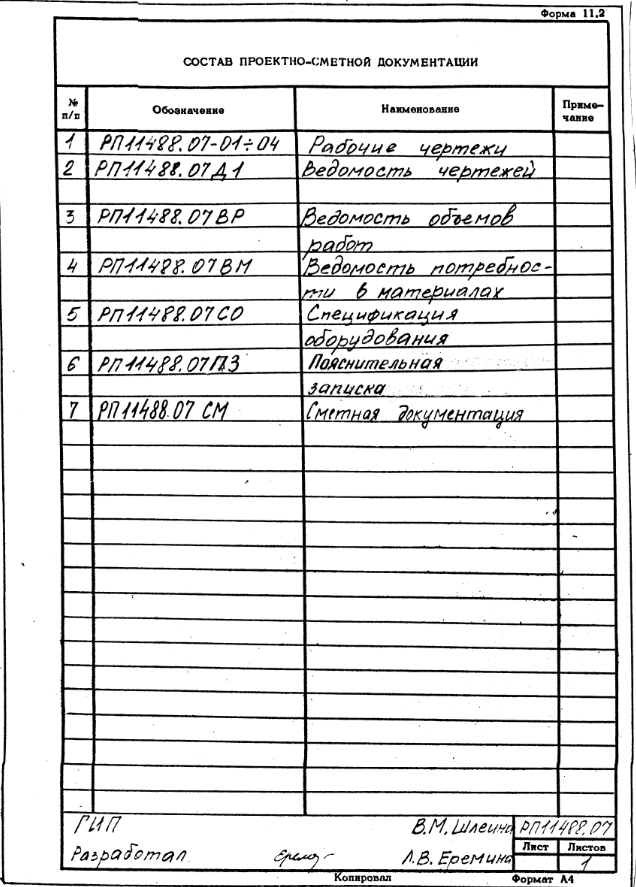 Форма 11.2
СОСТАВ ПРОЕКТНО-СМЕТНОЙ ДОКУМЕНТАЦИИ
№ п/п Обозначение Наименование Приме-
чание
1 РП11488.07-01÷04 Рабочие чертежи
2 РП11488.07Д1 Ведомость чертежей
3 РП11488.07ВР Ведомость объемов
работ
4 РП11488.07ВМ Ведомость потребнос-
ти в материалах
5 РП11488.07СО Спецификация
оборудования
6 РП11488.07ПЗ Пояснительная
записка
7 РП11488.07 СМ Сметная документация
ГИП В.М. Шлеина РП11488.07
Лист Листов
Разработал Л.В. Еремина 1
Копировал Формат А4